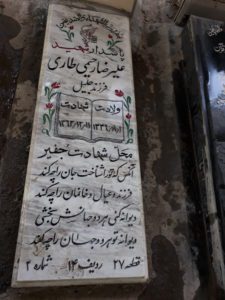 پاسدار شهید
علیرضا رحیمی طاری
فرزند جلیل
ولادت شهادت
محل شهادت جفیر
آنکس که تو را شناخت جان را چه کند
فرزند و عیال و خانمان را چه کند
دیوانه کنی هر دو جهانش بخشی
دیوانه تو هر دو جهان را چه کند
قطعه ۲۷ ردیف ۱۴ شماره ۲